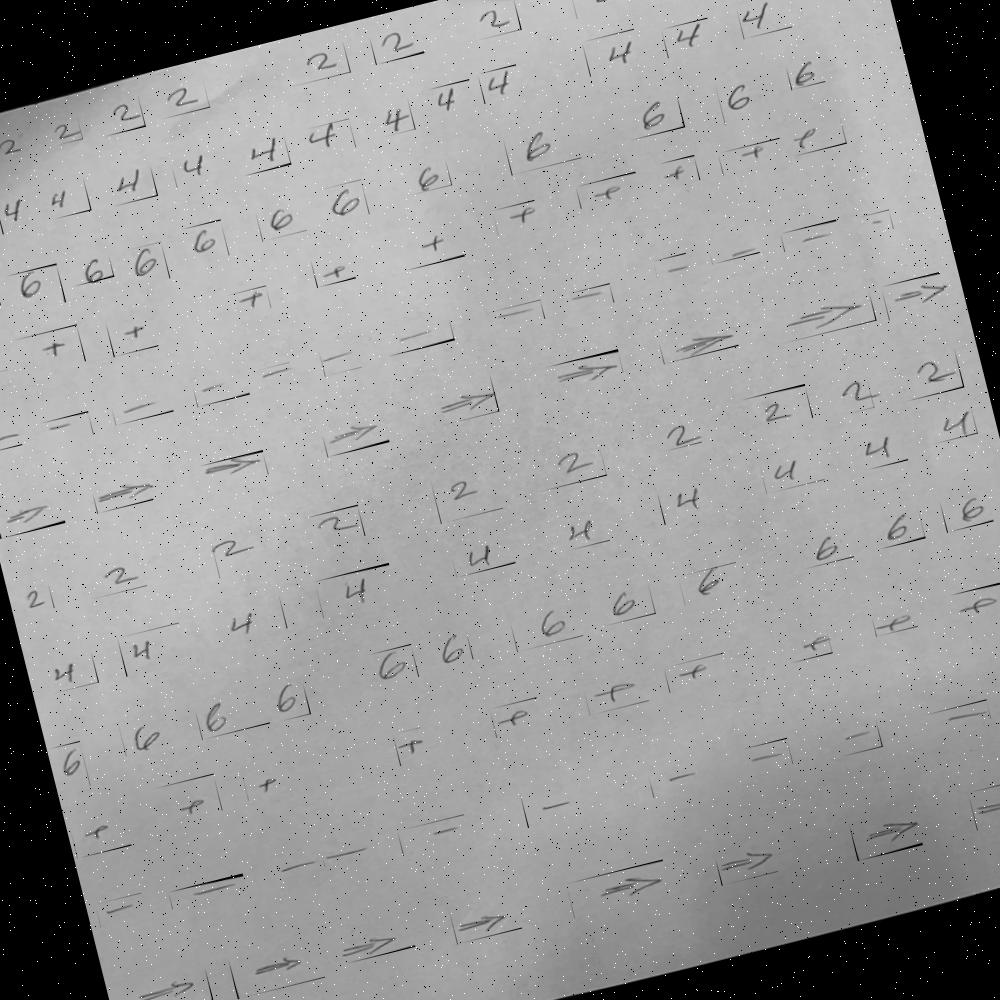 2 2 2 2 2 2 2
4 4 4 4 4 4 4 4 4 4 4 4
6 6 6 6 6 6 6 6 6 6 6
+ + + + + + + + + +
- - - - - - - - - - - - -
⇒ ⇒ ⇒ ⇒ ⇒ ⇒ ⇒ ⇒ ⇒
2 2 2 2 2 2 2 2 2 2
4 4 4 4 4 4 4 4 4 4
6 6 6 6 6 6 6 6 6 6 6 6
+ + + + + + + + + +
- - - - - - - - - -
⇒ ⇒ ⇒ ⇒ ⇒ ⇒ ⇒